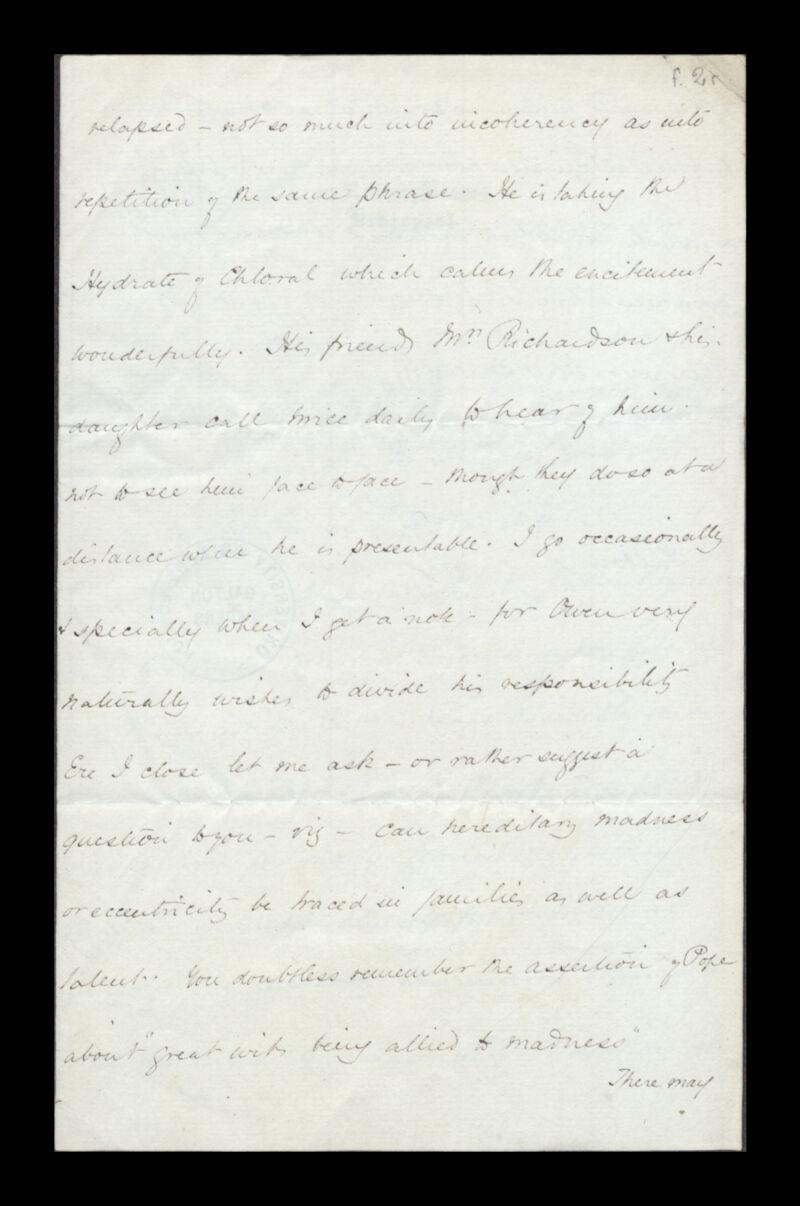 f. 2r
relapsed - not so much into incoherency as into
repetition of the same phrase. He is taking the
Hydrate of Chloral which calms the excitement
wonderfully. His friends Mrs Richardson & his
daughter call twice daily to hear of him.
not to see him face to face - though they do so at a
distance when he is presentable. I go occasionally
& specially when I get a note - for Owen very
naturally wishes to divide his responsibility
Ere I close let me ask - or rather suggest a
question to you - viz - Can hereditary madness
or eccentricity be traced in families as well as
talent. You doubtless remember the assertion of Pope
about "great wits being allied to madness"
There may
GALTON